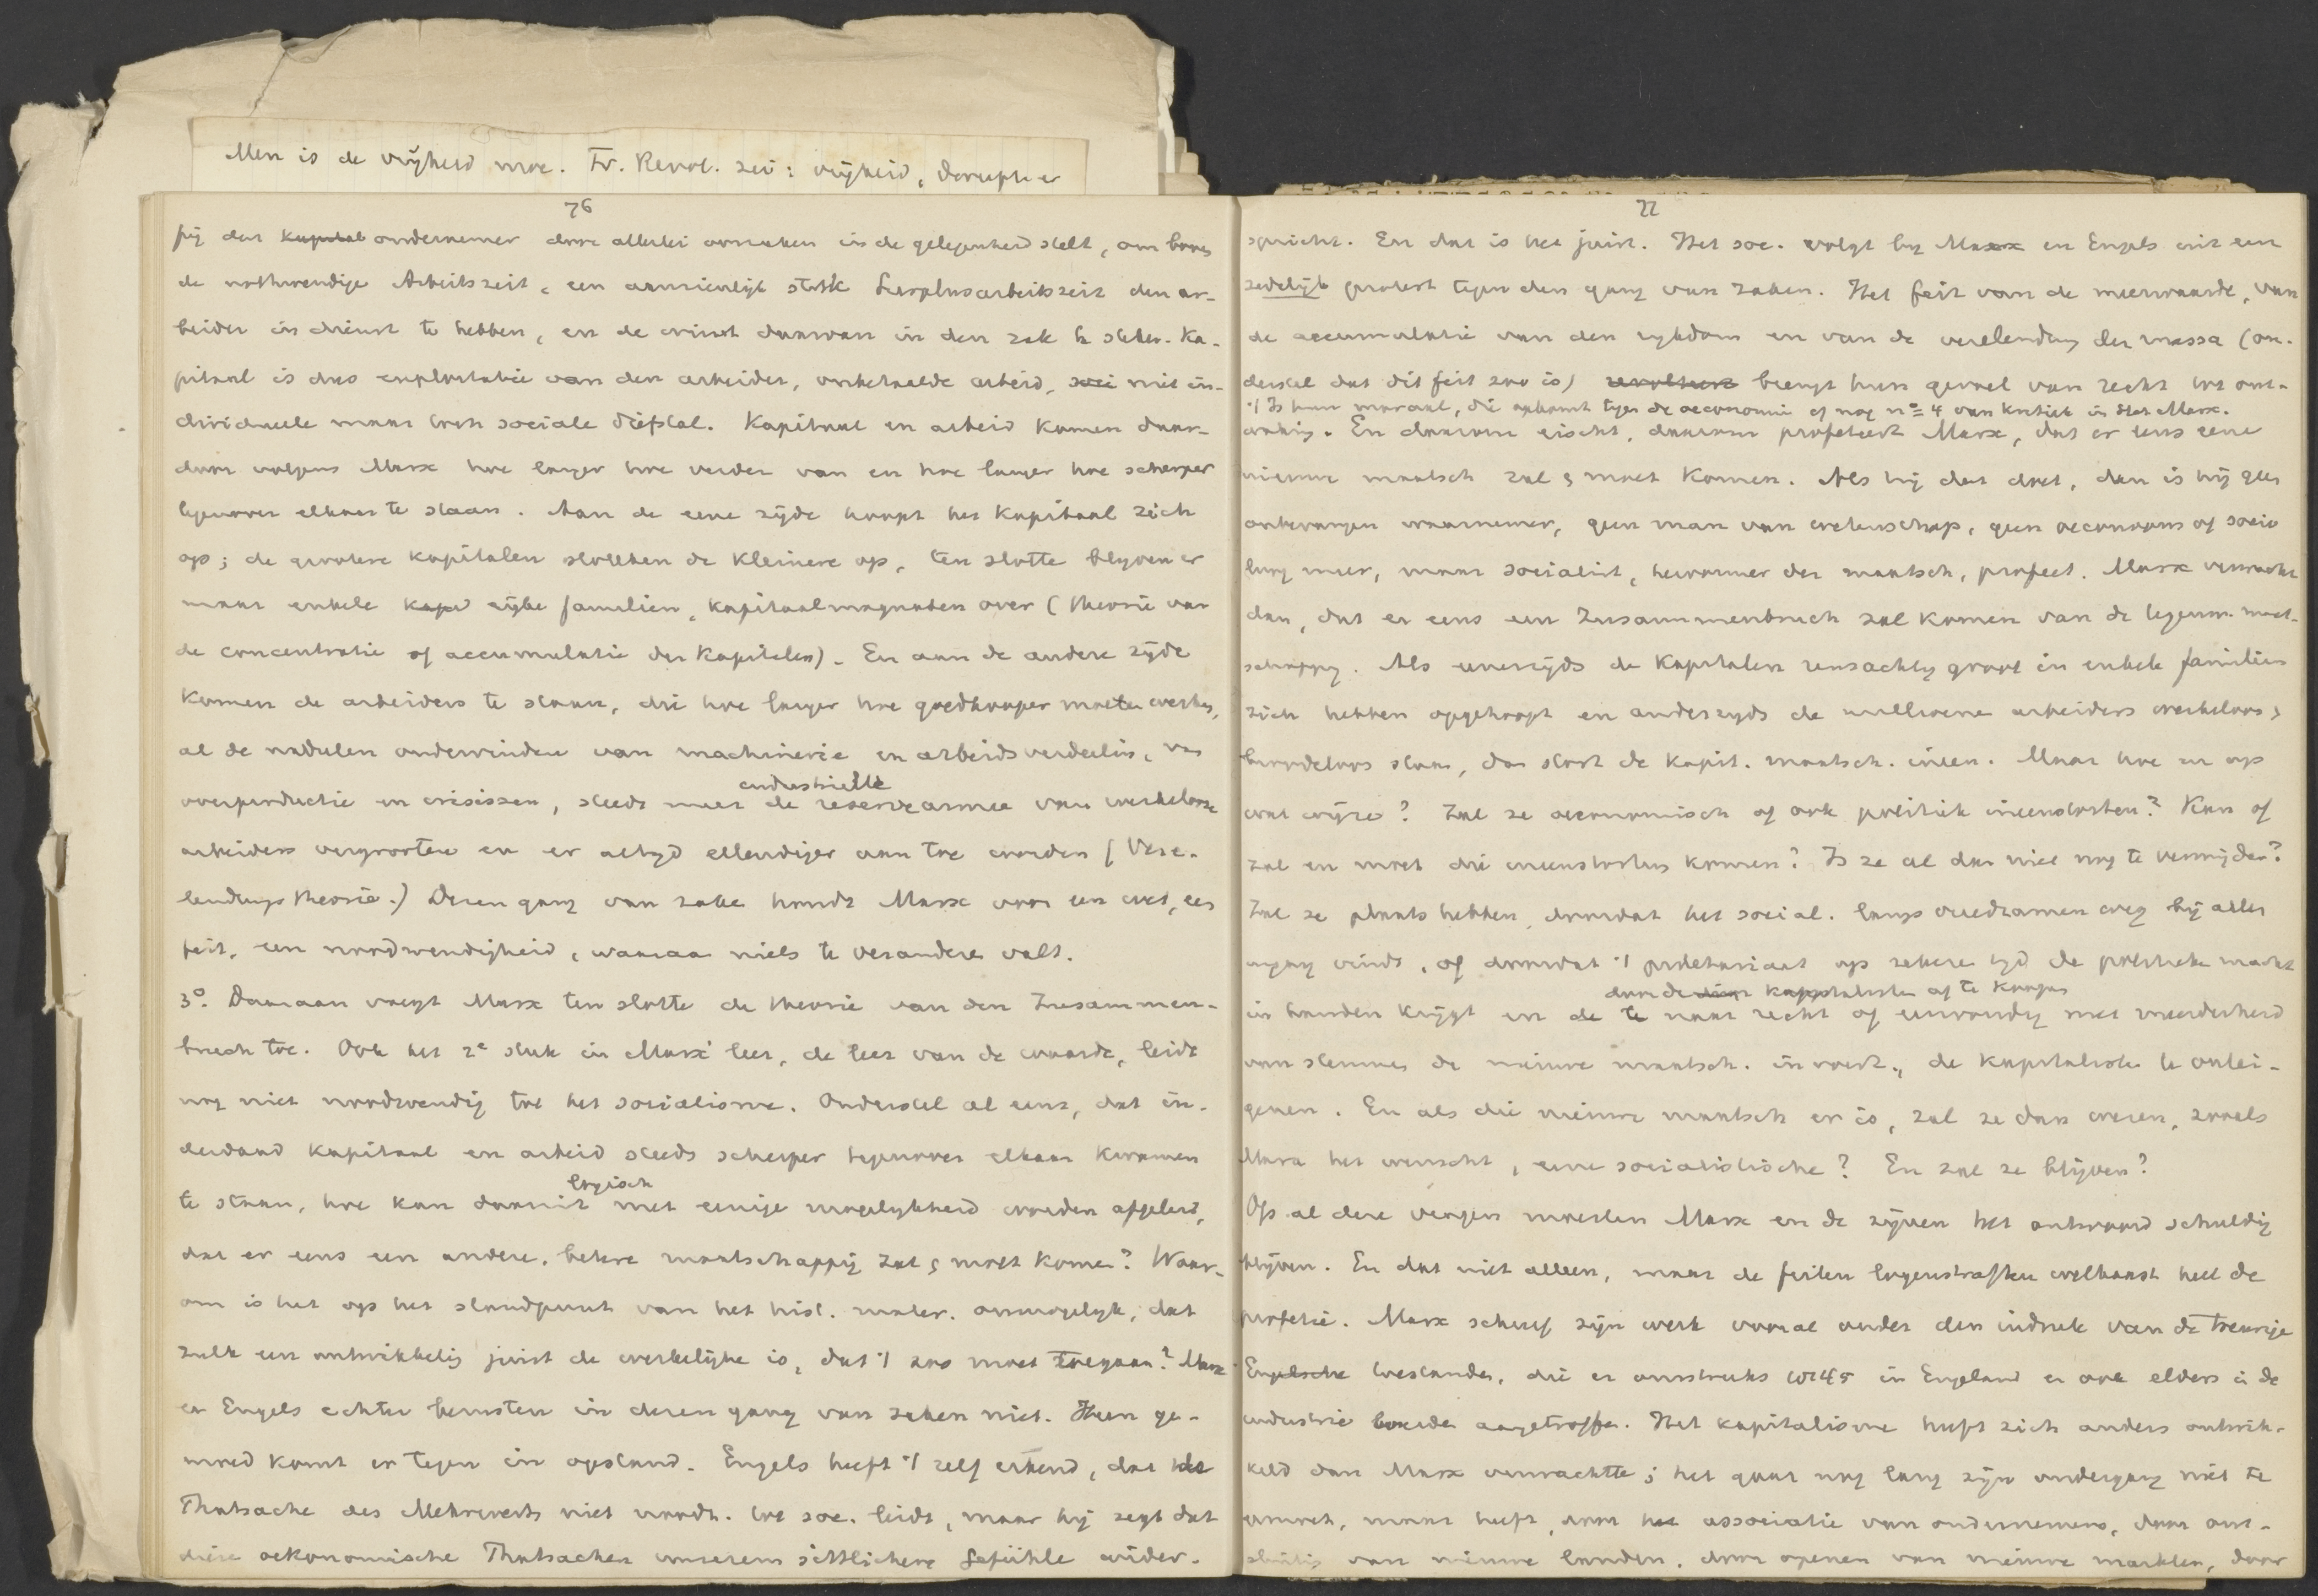 Men is de vrijheid moe. Fr. Revol. zei: vrijheid,
76
hij den kapital ondernemer door allerlei oorzaken in de gelegenheid stelt, om boven
de nothwendige Arbeitszeit, een aanzienlijk stuk Surplusarbeitszeit den ar-
beider in dienst te hebben, en de winst daarvan in den zak te steken. Ka-
pitaal is dus exploitatie van den arbeider, onbetaalde arbeid, niet in-
dividueele maar toch sociale diefstal. Kapitaal en arbeid komen daar-
door volgens Marx hoe langer hoe verder van en hoe langer hoe scherper
tegenover elkaar te staan. Aan de eene zijde hoopt het kapitaal zich
op; de grootere kapitalen slokken de kleinere op, ten slotte blijven er
maar enkele rijke familien, kapitaalmagnaten over (theorie van
de concentratie of accumulatie der kapitalen). En aan de andere zijde
komen de arbeiders te staan, die hoe langer hoe goedkooper moeten werken,
al de nadelen ondervinden van machinerie en arbeidsverdeeling, van
industrielle
overproductie en crisissen, steeds meer de reservearmee van werkeloze
arbeiders vergrooten en er altijd ellendiger aan toe worden (Vere-
lendungstheorie.) Dezen gang van zake houdt Marx voor een wet, een
feit, een noodwendigheid, waaraan niets te veranderen valt.
3°. Daaraan voegt Marx ten slotte de theorie van den Zusammen-
bruch toe. Ook het 2e stuk in Marx' leer, de leer van de waarde, leidt
nog niet noodwendig tot het socialisme. Ondersteld al eens, dat in-
derdaad kapitaal en arbeid steeds scherper tegenover elkaar kwamen
logisch
te staan, hoe kan daaruit met eenige mogelijkheid worden afgeleid,
dat er eens een andere, betere maatschappij zal & moet komen? Waar-
om is het op het standpunt van het hist. mater. onmogelijk, dat
zulk een ontwikkeling juist de werkelijke is, dat 't zoo moet toegaan? Marx
en Engels echter berusten in dezen gang van zaken niet. Hun ge-
moed komt er tegen in opstand. Engels heeft 't zelf erkend, dat de
Thatsache des Mehrwerts niet noodw. tot soc. leidt, maar hij zegt dat
diese oekonomische Thatsachen unserem sittlichen Gefühle wider-
77
spricht. En dat is het juist. Het soc. volgt bij Marx en Engels uit een
zedelijk protest tegen den gang van zaken. Het feit van de meerwaarde, van
de accumulatie van den rijkdom en van de verelendung der massa (on-
dersteld dat dit feit zoo is) brengt hun gevoel van recht tot ont-
't Is hun moraal, die opkomt tegen de oeconomie cf nog n° 4 van kritiek in Marx.
waking. En daarom eischt, daarom profeteert Marx, dat er eens eene
nieuwe maatsch zal & moet komen. Als hij dat doet, dan is hij geen
onbevangen waarnemer, geen man van wetenschap, geen oeconoom of socio
loog meer, maar socialist, hervormer der maatsch, profeet. Marx verwacht
dan, dat er eens een Zusammenbruch zal komen van de tegenw. maat-
schappij. Als eenerzijds de kapitalen reusachtig groot in enkele familien
zich hebben opgehoopt en anderzijds de millioenen arbeiders werkeloos &
broodeloos staan, dan stort de kapit. maatsch. ineen. Maar hoe en op
wat wijze? Zal ze oeconomisch of ook politiek ineenstorten? Kan of
zal en moet die ineenstorting komen? Is ze al dan niet nog te vermijden?
Zal ze plaats hebben, doordat het social. langs vreedzamen weg bij allen
ingang vindt, of doordat 't proletariaat op zekere tijd de politieke macht
door de kapitalisten af te koopen
in handen krijgt en de te naar recht of eenvoudig met meerderheid
van stemmen de nieuwe maatsch. invoert, de kapitalisten te ontei-
genen. En als die nieuwe maatsch er is, zal ze dan wezen, zooals
Marx het wenscht, eene socialistische? En zal ze blijven?
Op al deze vragen moesten Marx en de zijnen het antwoord schuldig
blijven. En dat niet alleen, maar de feiten logenstraften welhaast heel de
profetie. Marx schreef zijn werk vooral onder den indruk van de treurige
Engelsche toestanden, die er omstreeks 1845 in Engeland en ook elders in de
industrie werden aangetroffen. Het kapitalisme heeft zich anders ontwik-
keld dan Marx verwachtte; het gaat nog lang zijn ondergang niet te
gemoet, maar heeft, door associatie van ondernemers, door ont-
sluiting van nieuwe landen, door openen van nieuwe markten, door